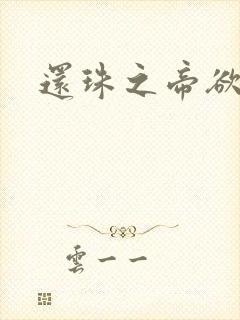 還珠之帝欲
雲一一